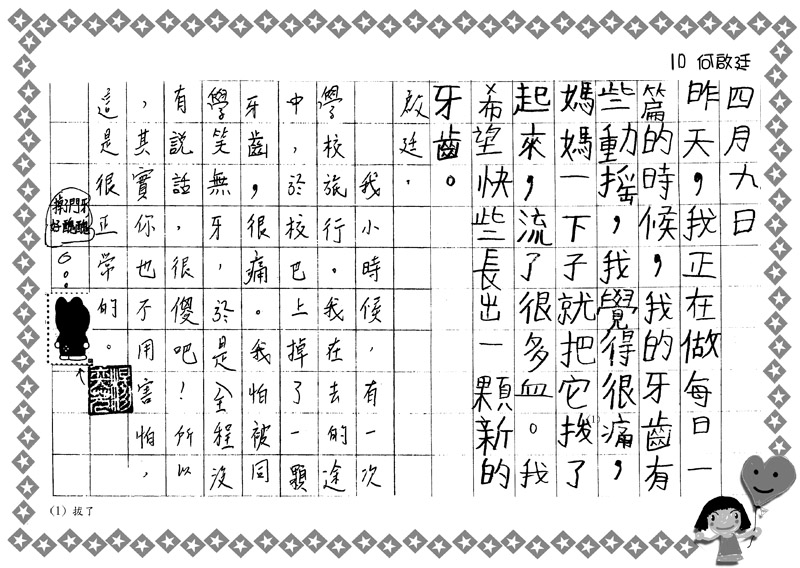 10 何啟廷
四月九日
昨天，我正在做每日一
篇的時候，我的牙齒有
些動搖，我覺得很痛，
媽媽一下子就把它捘(1)了
起來，流了很多血。我
希望快些長出一顆新的
牙齒。
啟廷，
我小時候，有一次
學校旅行。我在去的途
中，於校巴上掉了一顆
牙齒，很痛。我怕被同
學笑無牙，於是全程沒
有說話，很傻吧！所以
，其實你也不用害怕，
這是很正常的。
掉了門牙
好醜醜
(1) 拔了